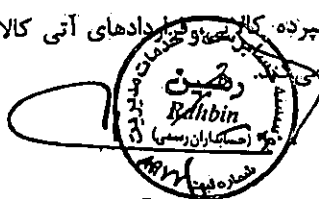 سپرده کالایی و قراردادهای آتی کالا
می
موسسه حسابرسی و خدمات مدیریت
رهبین
Rahbin
(حسابداران رسمی)
شماره ثبت